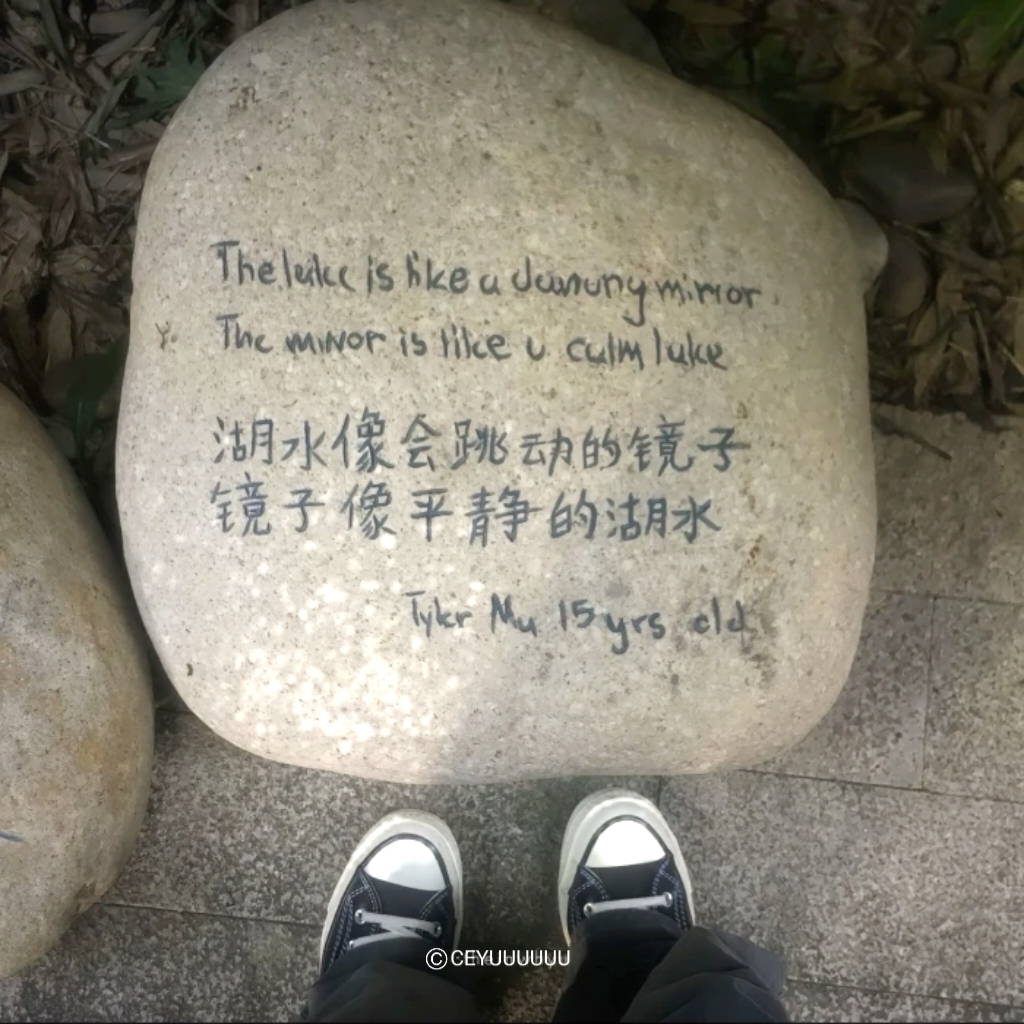 The lake is like a dancing mirror.
The mirror is like a calm lake
湖水像会跳动的镜子
镜子像平静的湖水
Tyler Mu 15 yrs old
©CEYUUUUUU